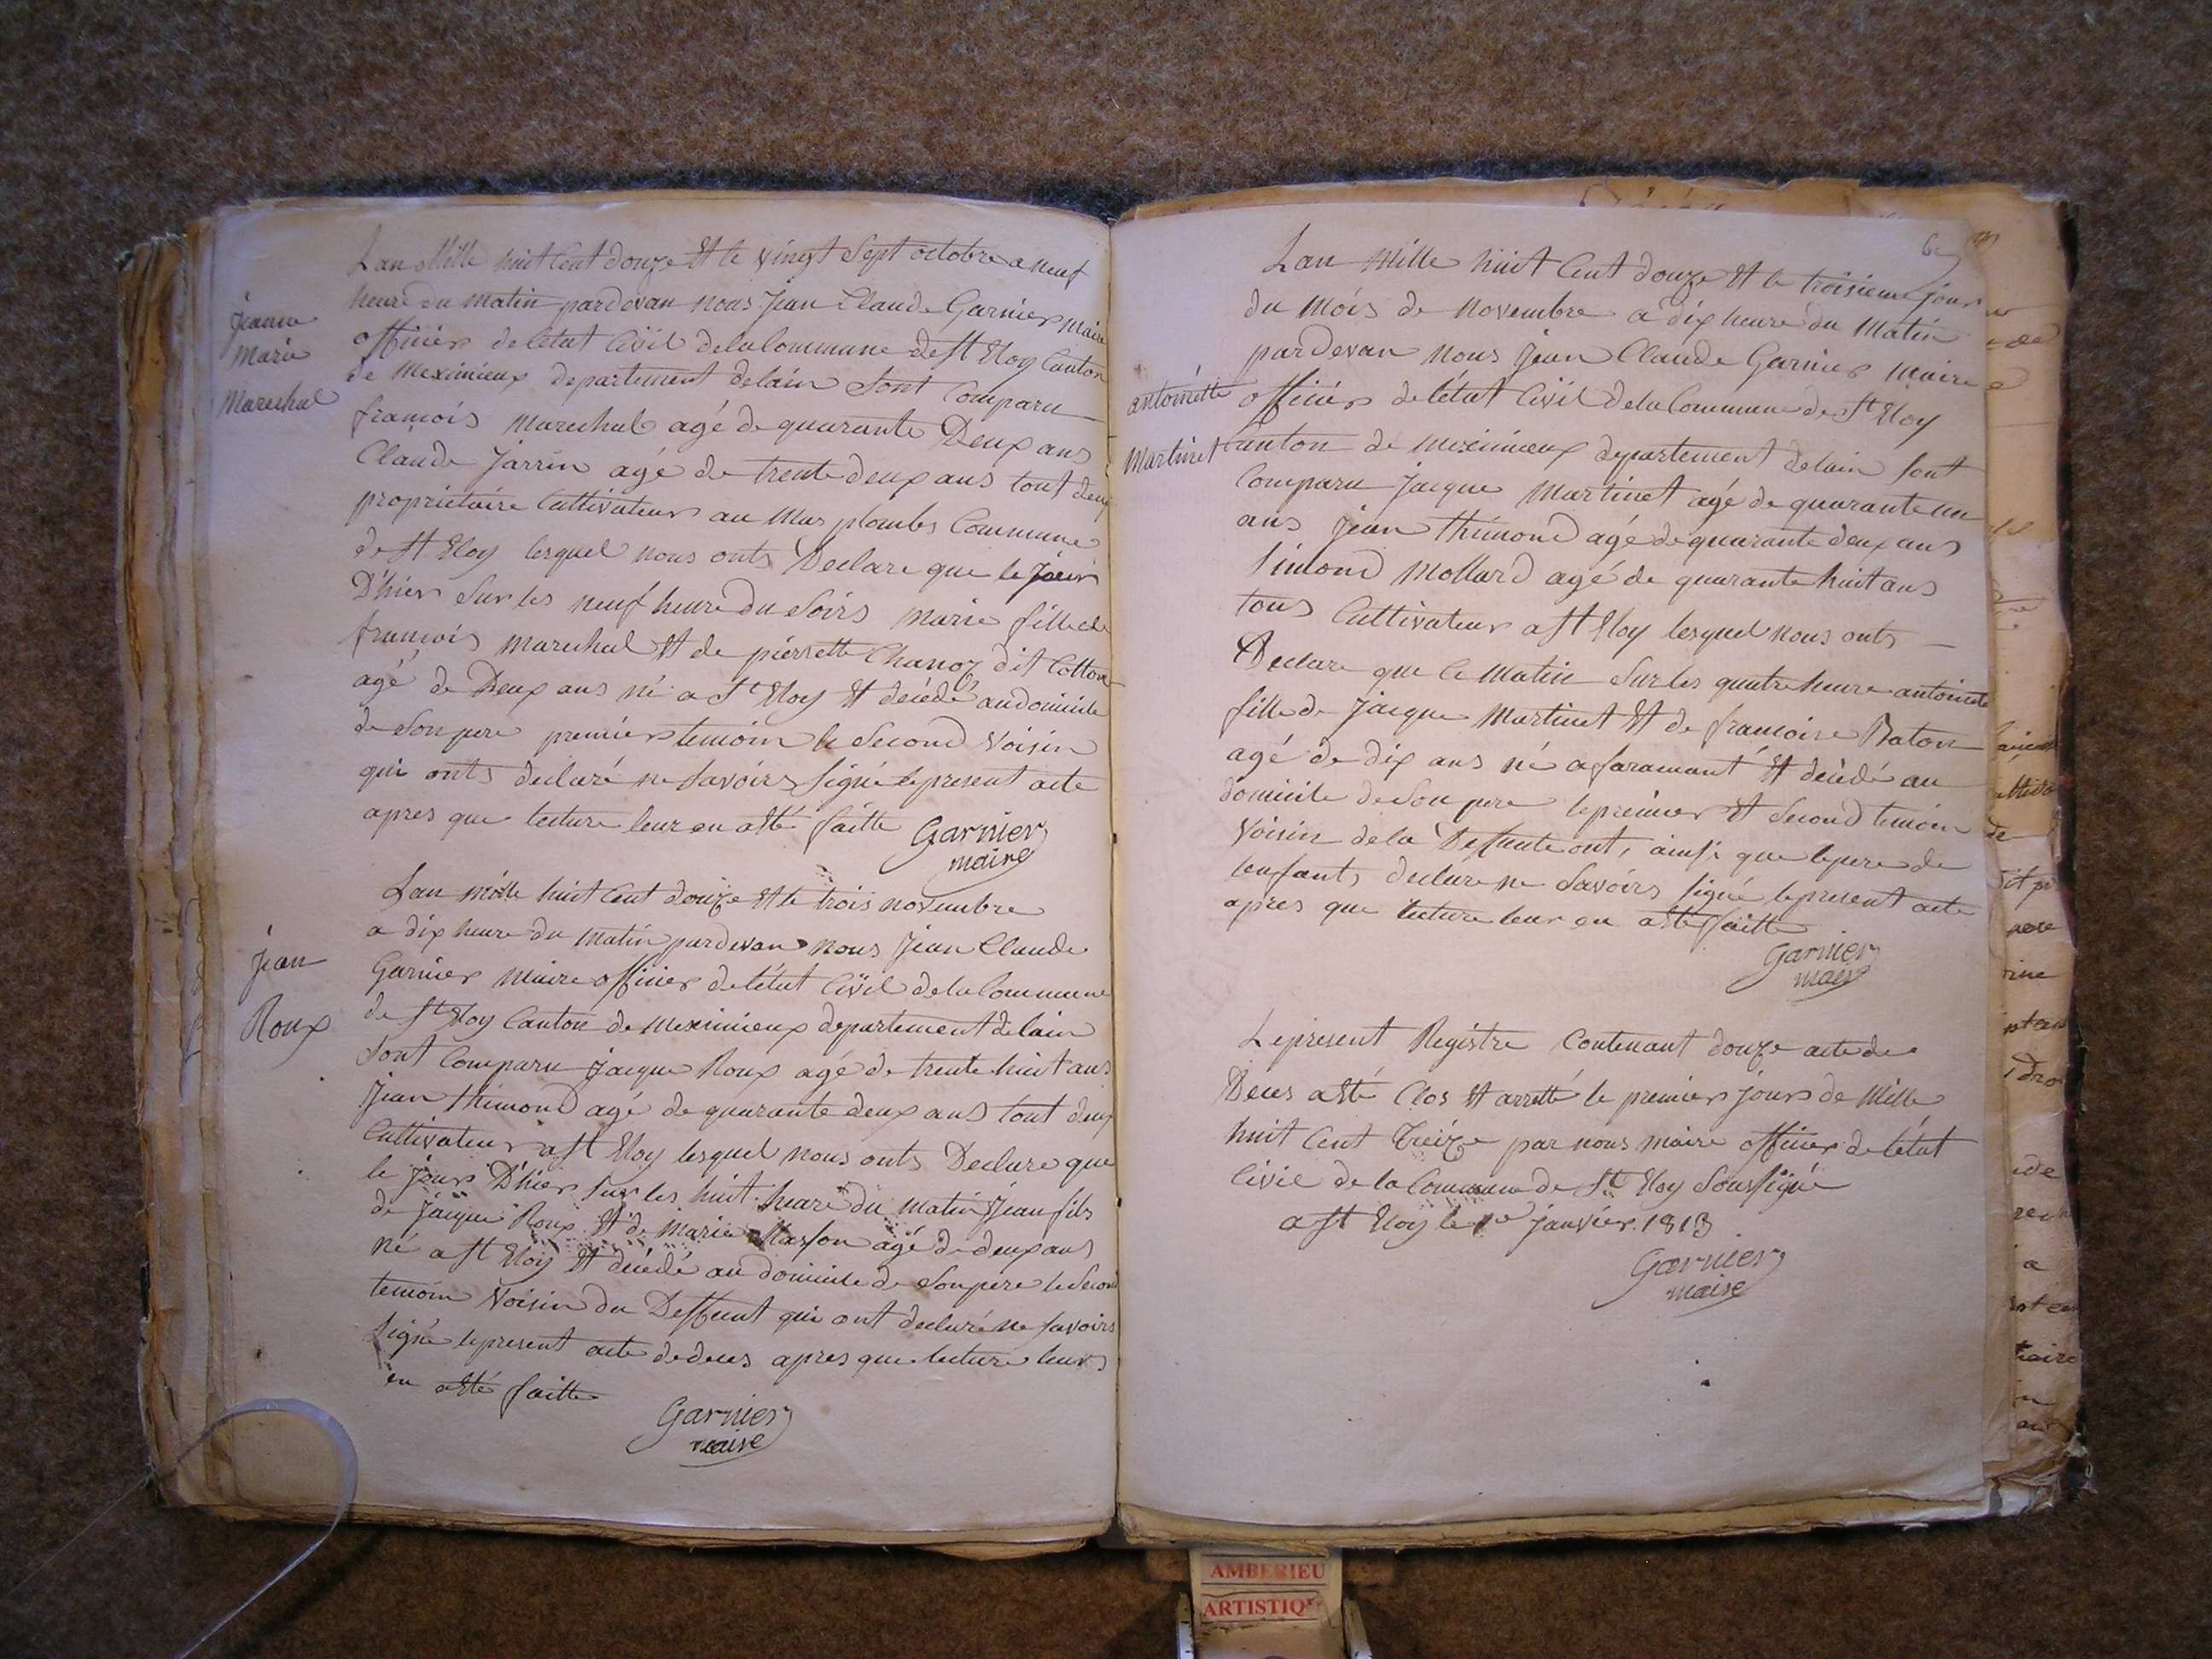 Jeanne
Marie
Marechal
Lan Mille huit Cent douze Et le vingt Sept octobre a neuf
heure du matin pardevan nous Jean Claude Garnier Maire
officier de létat Civil dela Commune de St Eloy Canton
de Meximieux departement delain Sont Comparu
francois Marechal agé de quarante Deux ans
Claude Jarrin agé de trente deux ans tout deux
proprietaire Cultivateur au Mas plombs Commune
de St Eloy lesquel nous onts Declare que le jour
D'hier Sur les neuf heure du Soirs Marie fille de
francois Marechal Et de pierrette Chanoz dit Cotton
agé de Deux ans né a St Eloy Et décédé au domicile
de Son pere premier temoin le Second Voisin
qui onts declaré ne Savoirs Signé le present acte
apres que lecture leur en a Eté faitte Garnier
maire
Jean
Roux
Lan mille huit Cent douze Et le trois novembre
a dix heure du Matin pardevan nous Jean Claude
Garnier Maire officier de létat Civil dela Commune
de St Eloy Canton de Meximieux departement delain
Sont Comparu Jacque Roux agé de trente huit ans
Jean thimond agé de quarante deux ans tout deux
Cultivateur a St Eloy lesquel nous onts Declare que
le jours D'hier Sur les huit heure du Matin Jean fils
de Jacque Roux Et de Marie Masson agé de deux ans
né a St Eloy Et décédé au domicile de Son pere le Second
temoin Voisin du Deffunt qui ont declaré ne Savoirs
Signé le present acte de deces apres que lecture leurs
en a Eté faitte
Garnier
maire
antoinette
Martinet
Lan Mille huit Cent douze Et le troisieme jour
du Mois de Novembre a dix heure du Matin
pardevan nous Jean Claude Garnier Maire
officier de létat Civil dela Commune de St Eloy
Canton de Meximieux departement delain Sont
Comparu Jacque Martinet agé de quarante un
ans Jean thimond agé de quarante deux ans
Simond Mollard agé de quarante huit ans
tous Cultivateur a St Eloy lesquel nous onts
Declare que le Matin Sur les quatre heure antoinette
fille de Jacque Martinet Et de francoise Raton
agé de dix ans né a faramant Et décédé au
domicile de Son pere le premier Et Second temoin
Voisin de la Defunte ont, ainsi que le pere de
lenfants declare ne Savoirs Signé le present acte
apres que lecture leur en a Eté faitte
Garnier
maire
Le present Registre Contenant douze acte de
Deces a Eté Clos Et arretté le premier jours de Mille
huit Cent Treize par nous maire officier de létat
Civil de la Commune de St Eloy Soussigné
a St Eloy le 1er janvier 1813
Garnier
maire
AMBERIEU
ARTISTIQ